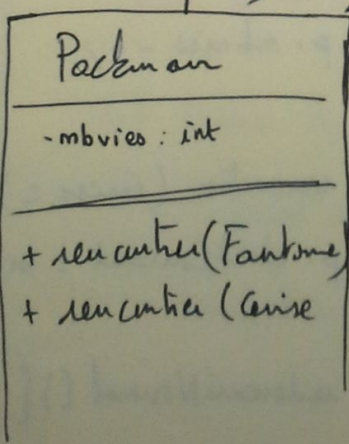 Packman
- nbvies : int
+ rencontrer (Fantome)
+ rencontrer (Cerise